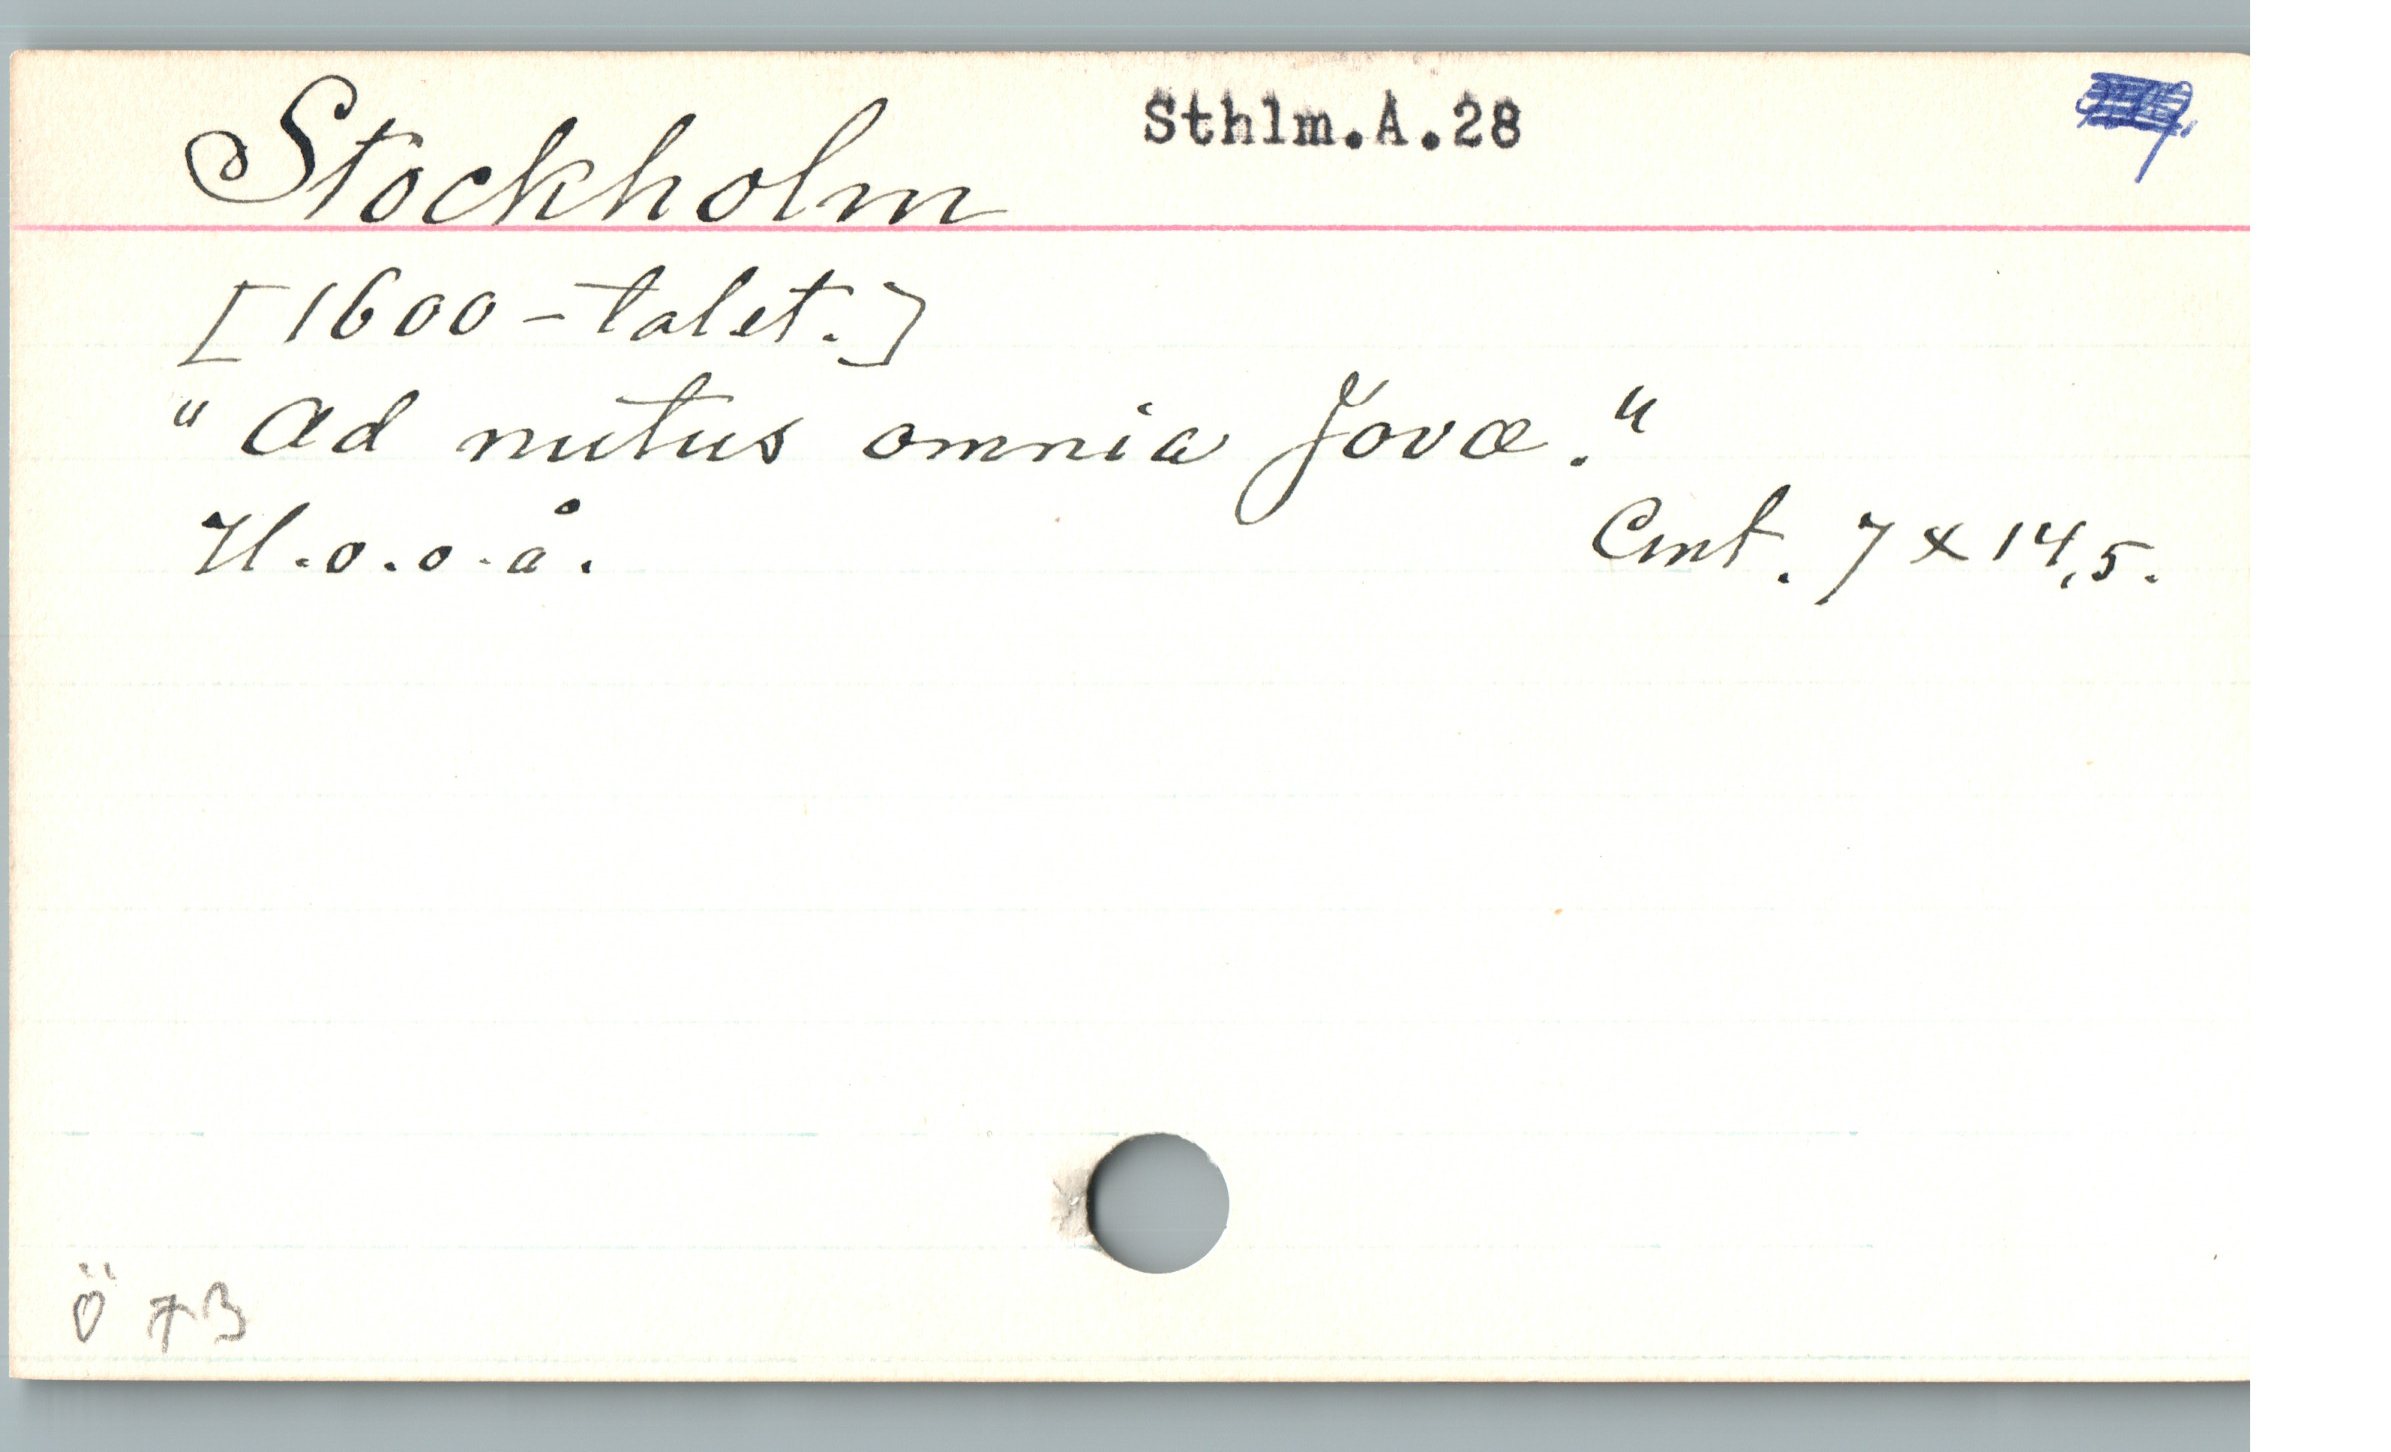 Stockholm Sthlm.A.28
[1600-talet.]
"Ad nutus omnia Jovæ."
U.o.o.å. Cmt. 7 x 14,5.
ö 73